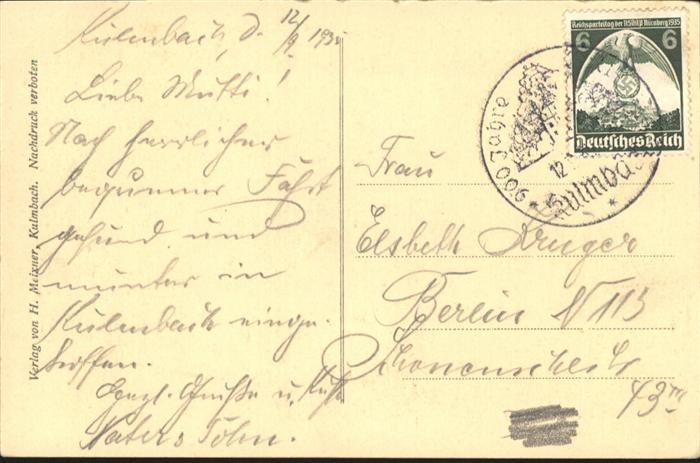 Kulmbach, d. 12/9 1935
Liebe Mutti!
Nach herrlicher
bequemer Fahrt
gesund und
munter in
Kulmbach einge-
troffen.
Herzl. Grüße u. Küße
Vater & Sohn.
Verlag von H. Meixner, Kulmbach. Nachdruck verboten
Reichsparteitag der NSDAP Nürnberg 1935
6 6
Deutsches Reich
900 Jahre
12.
Kulmba
Frau
Elsbeth Kruger
Berlin N 113
43